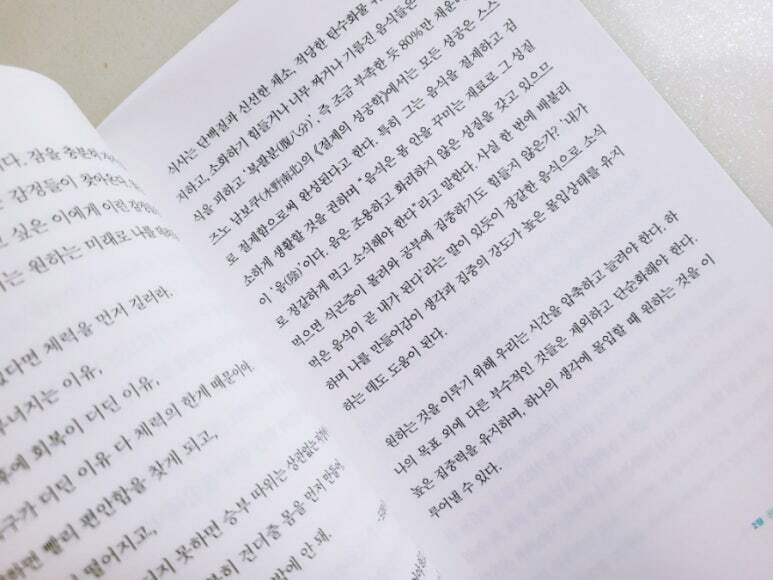 다. 잠을 충분히
감정들이 찾아온다.
싶은 이에게 이런 감정
는 원하는 미래로 나를
다면 체력을 먼저 길러라.
너지는 이유,
후에 회복이 더딘 이유,
구가 더딘 이유 다 체력의 한계 때문이야.
하면 빨리 편안함을 찾게 되고,
떨어지고,
디지 못하면 승부 따위는 상관없는 지경
히 견뎌줄 몸을 먼저 만들어.
밖에 안 돼.
식사는 단백질과 신선한 채소, 적당한 탄수화물
지하고, 소화하기 힘들거나 너무 짜거나 기름진 음식들은
식을 피하고 '복팔분(腹八分)', 즉 조금 부족한 듯 80%만 채운
즈노 남보쿠(水野南北)의 《절제의 성공학》에서는 모든 성공은 스스
로 절제함으로써 완성된다고 한다. 특히 그는 음식을 절제하고 검
소하게 생활할 것을 권하며 "음식은 몸 안을 꾸미는 재료로 그 성질
이 '음(陰)'이다. 음은 조용하고 화려하지 않은 성질을 갖고 있으므
로 정갈하게 먹고 소식해야 한다"라고 말한다. 사실 한 번에 배불리
먹으면 식곤증이 몰려와 공부에 집중하기도 힘들지 않은가? '내가
먹은 음식이 곧 내가 된다'라는 말이 있듯이 정갈한 음식으로, 소식
하며 나를 만들어감이 생각과 집중의 강도가 높은 몰입상태를 유지
하는 데도 도움이 된다.
원하는 것을 이루기 위해 우리는 시간을 압축하고 늘려야 한다. 하
나의 목표 외에 다른 부수적인 것들은 제외하고 단순화해야 한다.
높은 집중력을 유지하며, 하나의 생각에 몰입할 때 원하는 것을 이
루어낼 수 있다.
2장